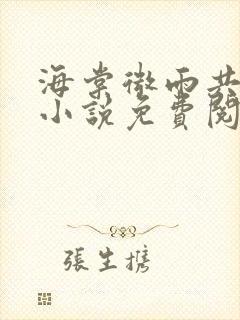 海棠微雨共
小說免費閱
張生攜